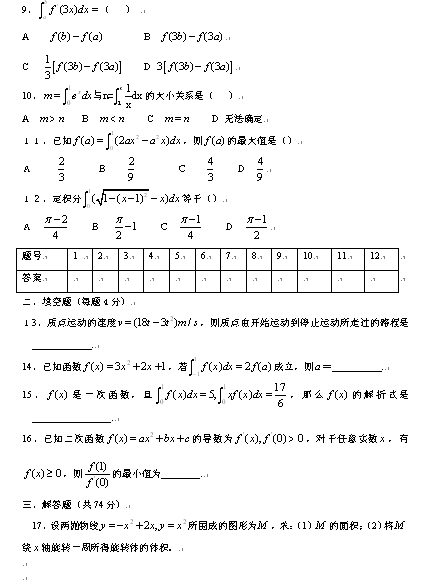 9. ∫ f (3x)dx = ( )
A f(b) − f(a) B f(3b) − f(3a)
C 1/3[f(3b) − f(3a)] D 3[f(3b) − f(3a)]
10. m = ∫ e^x dx与n=∫ 1/x dx 的大小关系是( )
A m > n B m < n C m = n D 无法确定
11. 已知f(a) = ∫ (2ax² − a²x)dx, 则f(a)的最大值是()
A 2/3 B 2/9 C 4/3 D 4/9
12. 定积分∫ (√(1−(x−1)²) − x)dx等于()
A (π−2)/4 B π/2 −1 C (π−1)/4 D (π−1)/2
题号 1. 2. 3. 4. 5. 6. 7. 8. 9. 10. 11. 12.
答案
二、填空题(每题4分)
13. 质点运动的速度v = (18t − 3t²)m/s, 则质点由开始运动到停止运动所走过的路程是
14. 已知函数f(x) = 3x² + 2x + 1, 若∫ f(x)dx = 2f(a)成立, 则a =
15. f(x)是一次函数, 且∫ f(x)dx = 5, ∫ xf(x)dx = 17/6, 那么f(x)的解析式是
16. 已知二次函数f(x) = ax² + bx + c的导数为f'(x), f'(0) > 0, 对于任意实数x, 有
f(x) ≥ 0, 则f(1)/f'(0)的最小值为
三、解答题(共74分)
17. 设两抛物线y = −x² + 2x, y = x²所围成的图形为M, 求: (1)M的面积; (2)将M
绕x轴旋转一周所得旋转体的体积.